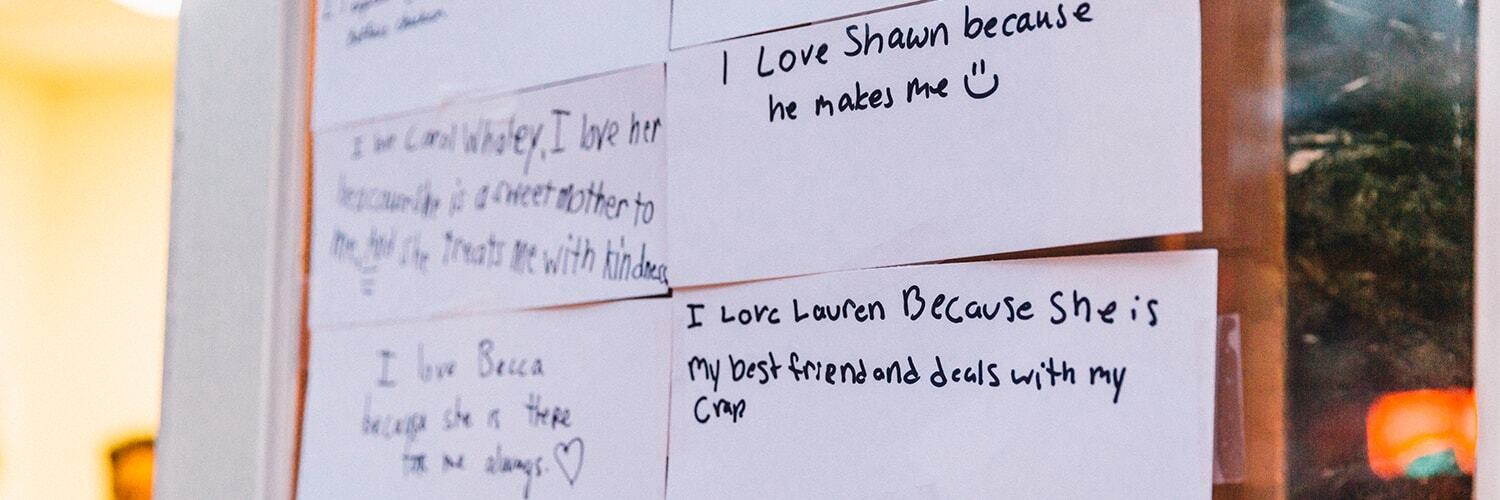 I Love Shawn because
he makes me
I love Carol Whaley, I love her
she is a sweet mother to
me, And she treats me with kindness
I Love Lauren Because She is
my best friend and deals with my
Crap
I love Becca
because she is there
for me always. ♡